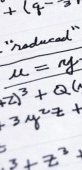 +(q - 3
"reduced"
u = y
+z)³ + Q(
+3y²z +
³ + z³ +